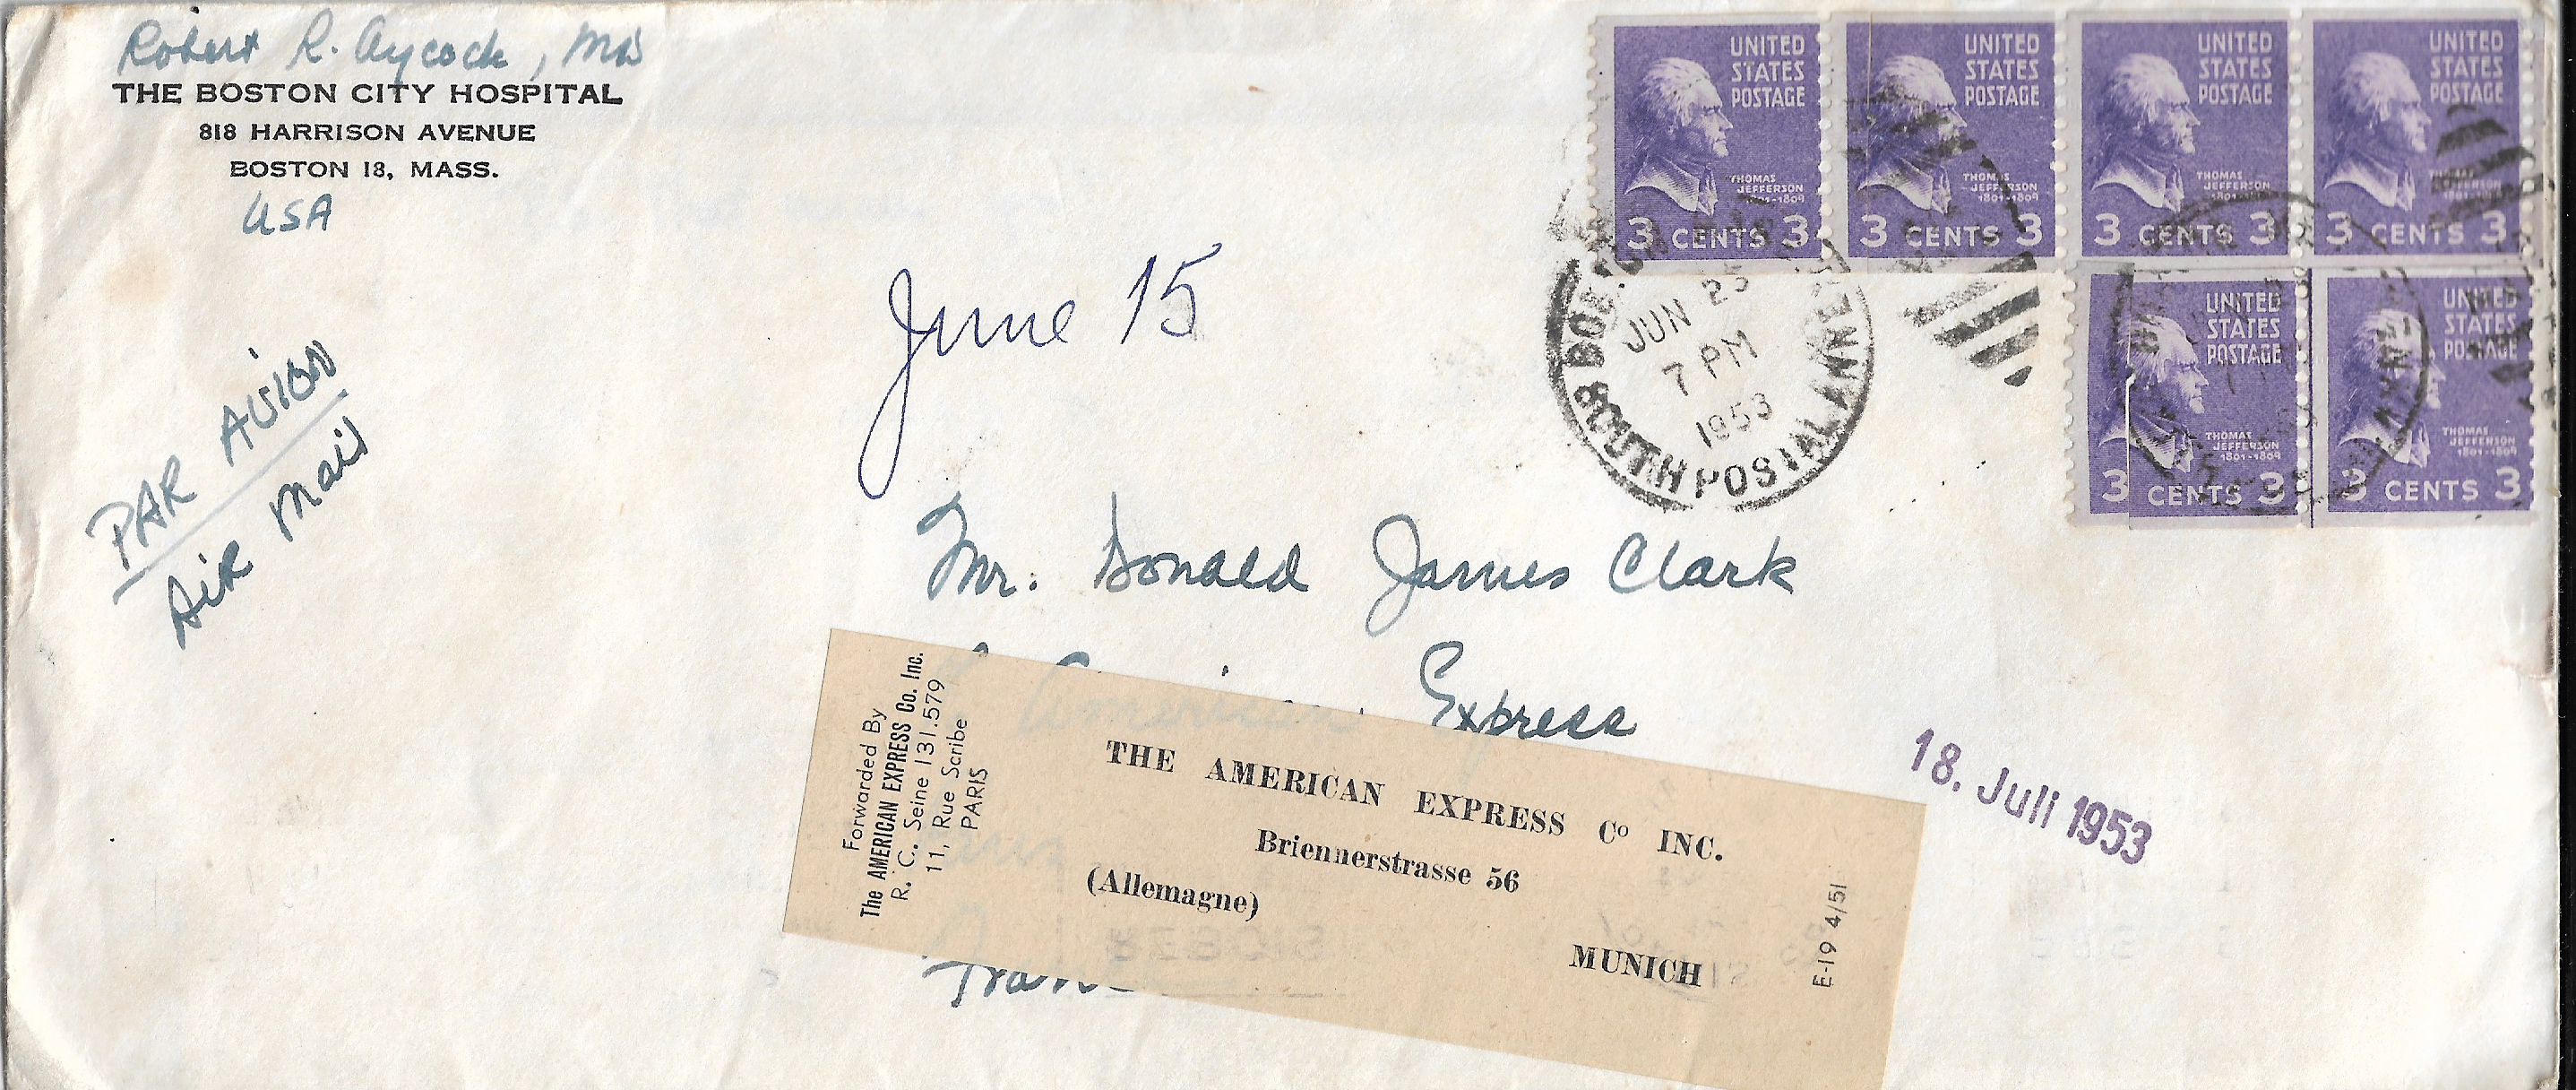 Robert R. Aycock, MD
THE BOSTON CITY HOSPITAL
818 HARRISON AVENUE
BOSTON 18, MASS.
USA
PAR AVION
AIR Mail
June 15
UNITED
STATES
POSTAGE
THOMAS
JEFFERSON
1801-1809
3 CENTS 3
UNITED
STATES
POSTAGE
THOMAS
JEFFERSON
1801-1809
3 CENTS 3
UNITED
STATES
POSTAGE
THOMAS
JEFFERSON
1801-1809
3 CENTS 3
UNITED
STATES
POSTAGE
3 CENTS 3
UNITED
STATES
POSTAGE
THOMAS
JEFFERSON
1801-1809
3 CENTS 3
UNITED
STATES
POSTAGE
THOMAS
JEFFERSON
1801-1809
3 CENTS 3
BOSTON
JUN 25
7 PM
1953
SOUTH POSTAL ANNEX
Mr. Donald James Clark
American Express
Forwarded By
The AMERICAN EXPRESS Co. Inc.
R. C. Seine 131.579
11, Rue Scribe
PARIS
THE AMERICAN EXPRESS Co INC.
Briennerstrasse 56
(Allemagne)
MUNICH
E-19 4/51
18. Juli 1953